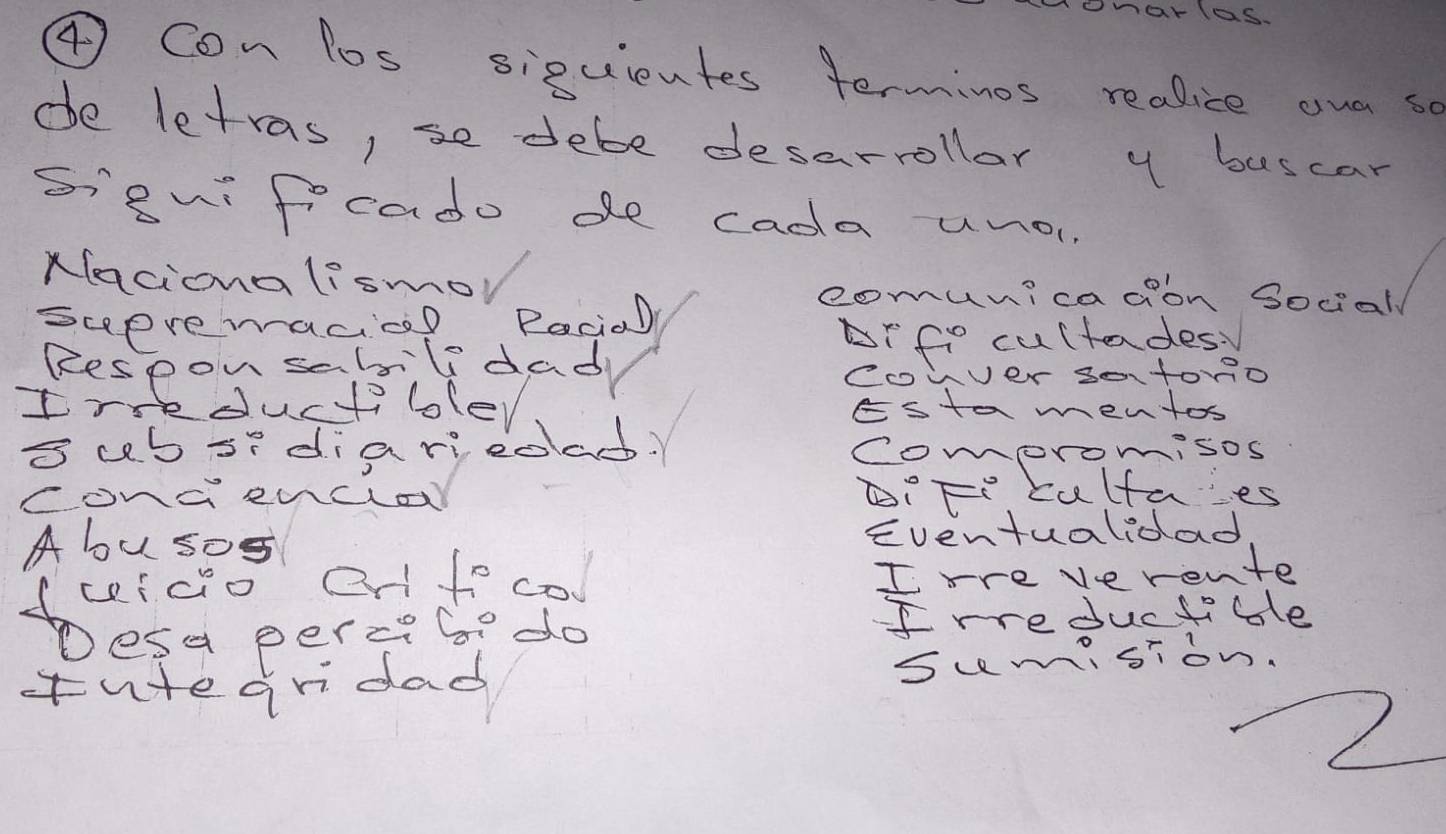 ④ Con los siguientes terminos realice una so
de letras, se debe desarrollar y buscar
significado de cada uno.
Nacionalismo
Supremacial Racial
Responsabilidad
Irreductible
Subsidiariedad.
Conciencia
Abusos
Juicio Critico
Desapercibido
Integridad
comunicación Social
Dificultades
Conversatorio
Estamentos
Compromisos
Dificultades
Eventualidad
Irreverente
Irreductible
Sumisión.